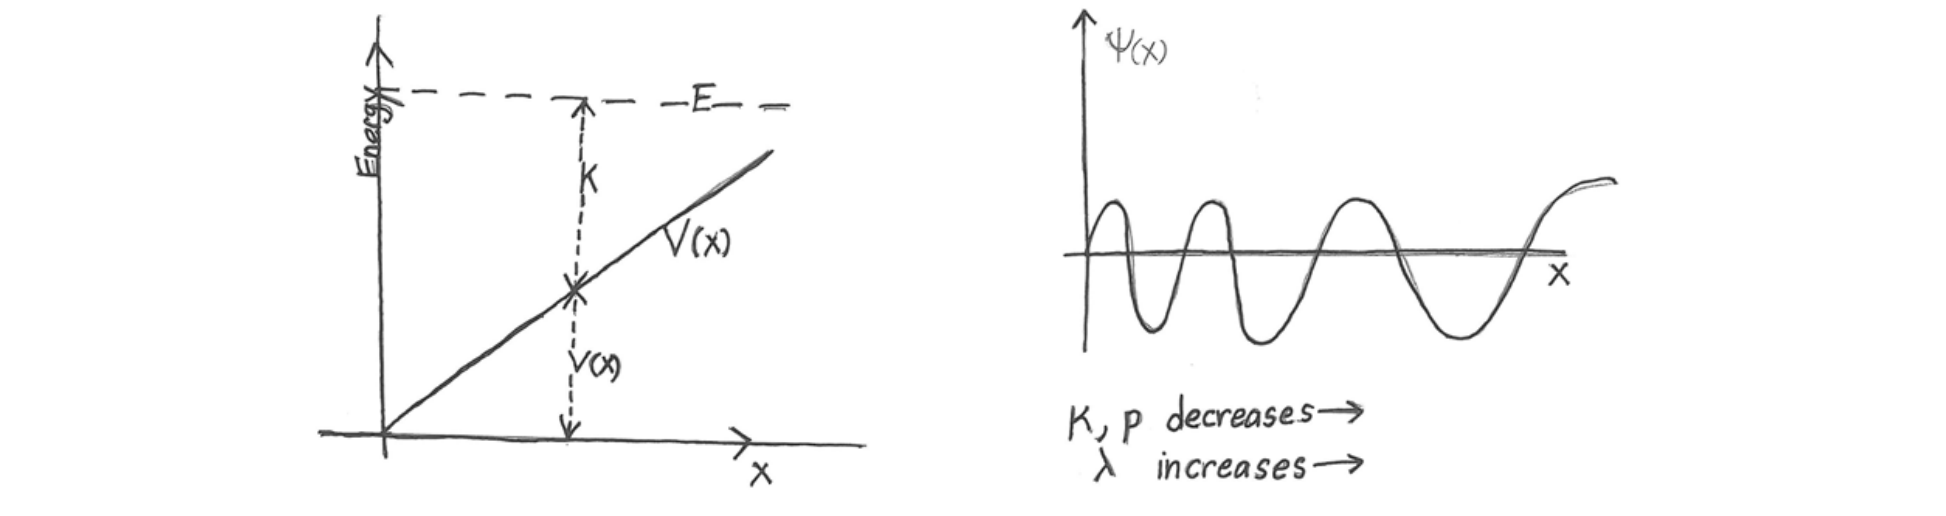 Energy
E
K
V(x)
V(x)
x
Ψ(x)
x
K, p decreases→
λ increases→